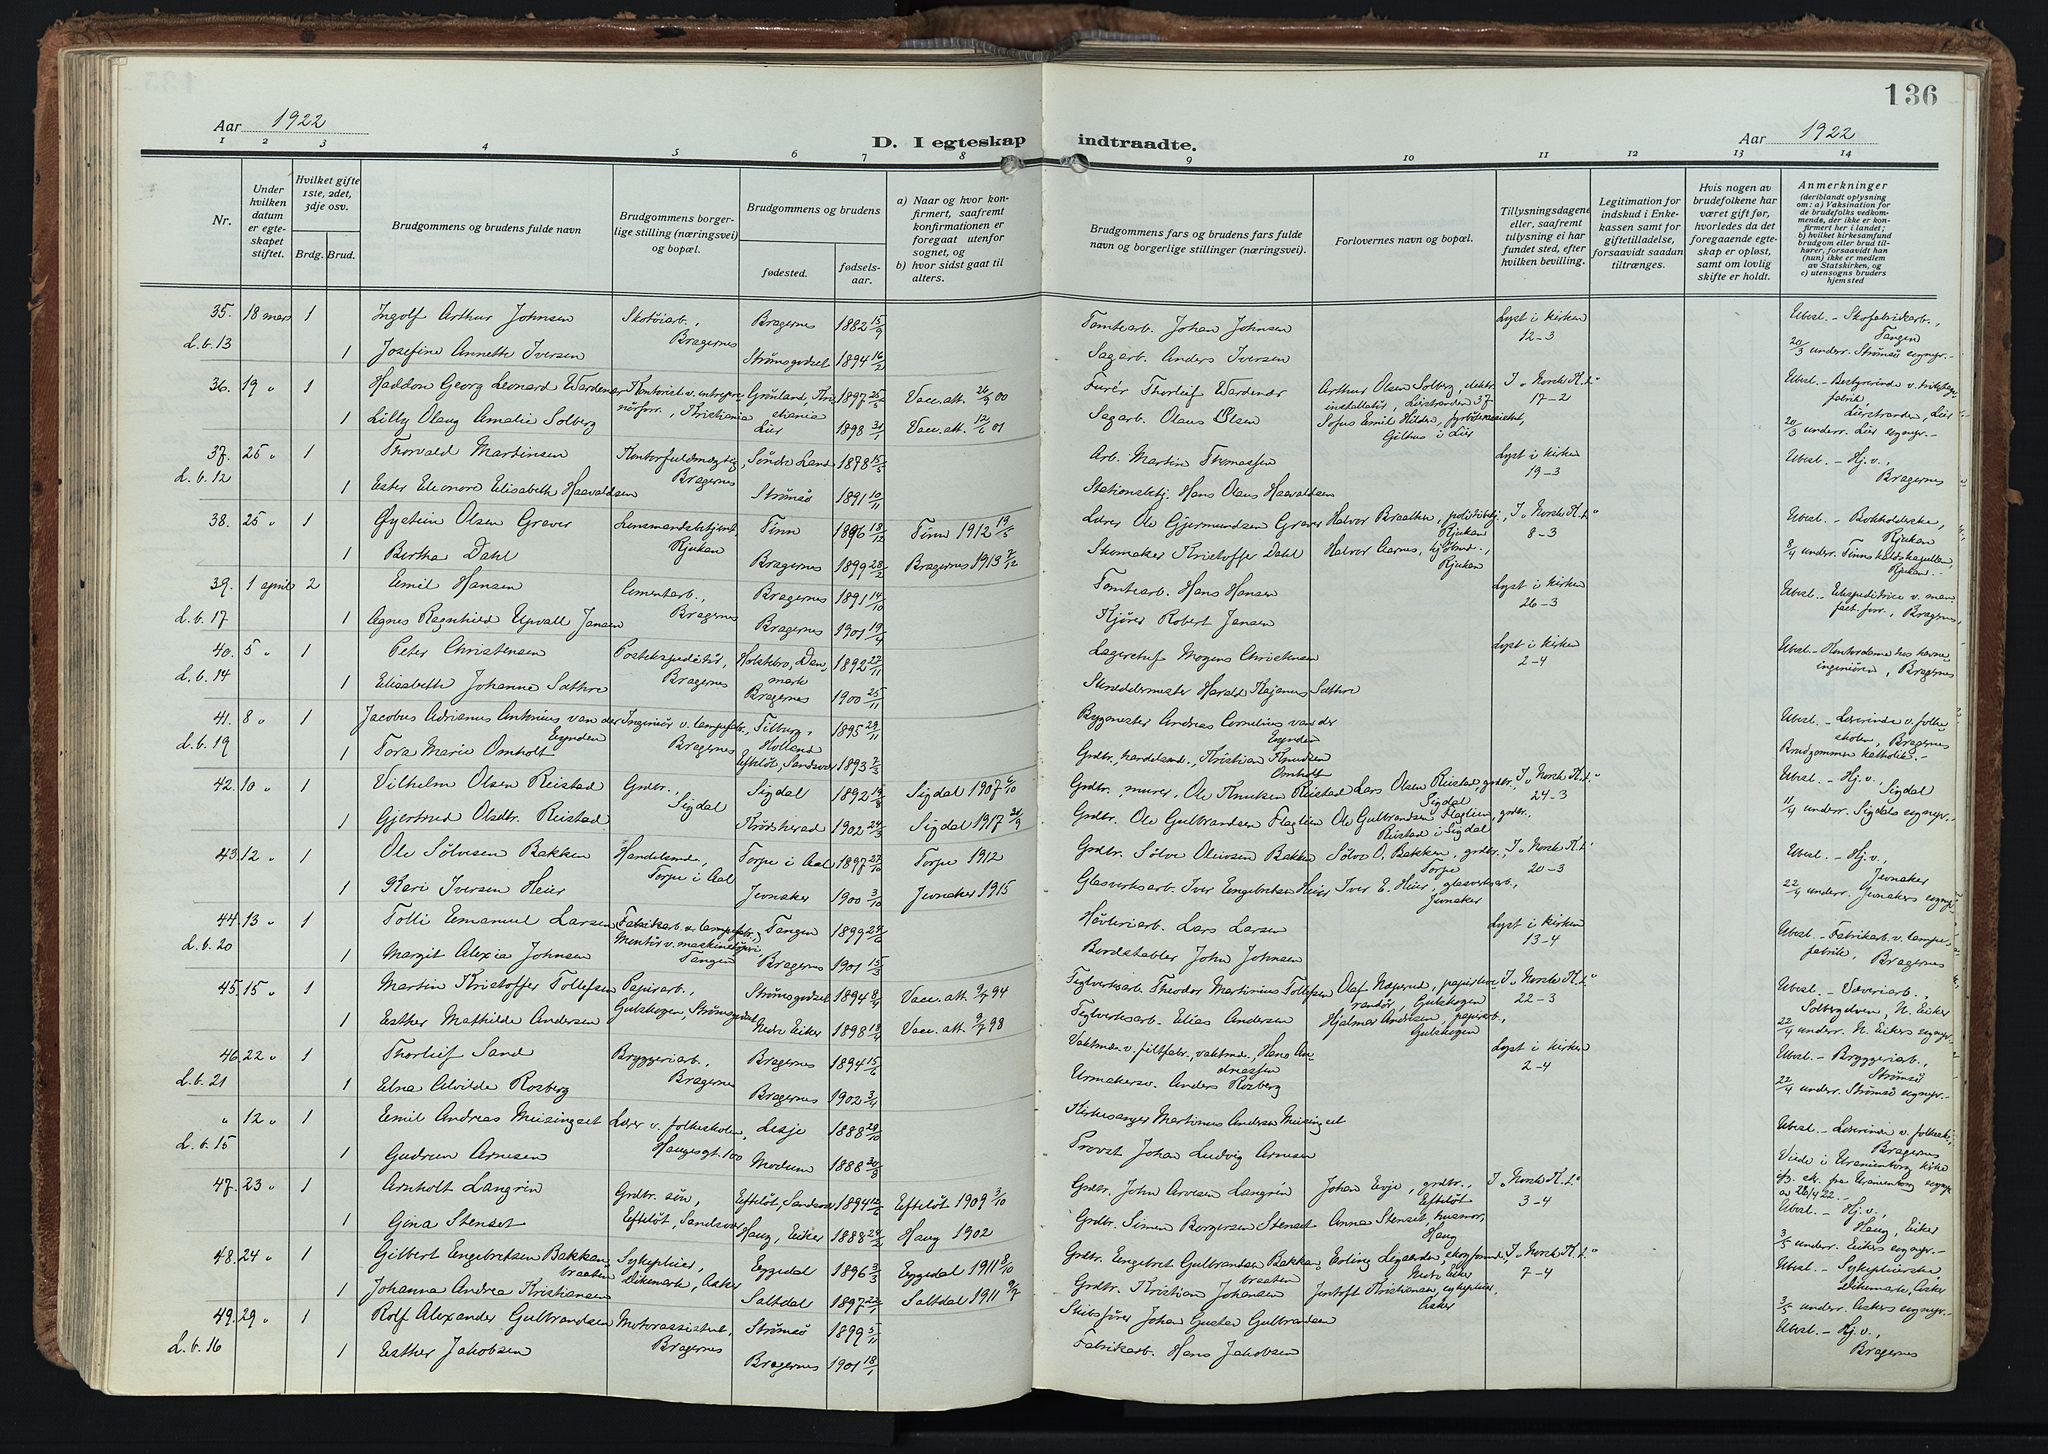 136
Aar 1922
D. I egteskap indtraadte.
Aar 1922
1 2 3 4 5 6 7 8 9 10 11 12 13 14
Nr.
Under hvilken datum er egteskapet stiftet.
Hvilket gifte 1ste, 2det, 3dje osv.
Brdg. Brud.
Brudgommens og brudens fulde navn
Brudgommens borgerlige stilling (næringsvei) og bopæl.
Brudgommens og brudens
fødested.
fødselsaar.
a) Naar og hvor konfirmert, saafremt konfirmationen er foregaat utenfor sognet, og
b) hvor sidst gaat til alters.
Brudgommens fars og brudens fars fulde navn og borgerlige stillinger (næringsvei).
Forlovernes navn og bopæl.
Tillysningsdagene eller, saafremt tillysning ei har fundet sted, efter hvilken bevilling.
Legitimation for indskud i Enkekassen samt for giftetilladelse, forsaavidt saadan tiltrænges.
Hvis nogen av brudefolkene har været gift før, hvorledes da det foregaaende egteskap er opløst, samt om lovlig skifte er holdt.
Anmerkninger (deriblandt oplysning om: a) Vaksination for de brudefolks vedkommende, der ikke er konfirmert her i landet; b) hvilket kirkesamfund brudgom eller brud tilhører, forsaavidt han (hun) ikke er medlem av Statskirken, og c) utensogns bruders hjemsted
35. 18 mars 1 Ingolf Arthur Johnsen Skotøiarb., Bragernes Bragernes 1882 15/9 Tomtearb. Johan Johnsen Lyst i kirken 12-3 Ubesl. - Skofabrikarb., Tangen
L.b. 13 1 Josefine Annette Iversen Strømsgodset 1894 16/2 Sagarb. Anders Iversen 20/3 underr. Strømsø sognepr. -
36. 19 " 1 Haddon Georg Leonard Wardenær Kristiania Grønland, Kristiania 1897 25/5 Vacc. att. 26/9 00 Furér Thorleif Wardenær Arthur Olsen Solberg, elektr. installatør, Lierstranden 37 I "Norsk K.t." 17-2
1 Lilly Olaug Amalie Solberg Lier 1898 31/1 Vacc. att. 12/6 01 Sagarb. Olaus Olsen Sofus Emil Hilden, fyrbøterassistent, Gilhus i Lier Lierstranda, Lier 20/3 underr. Lier sognepr. -
37. 25 " 1 Thorvald Martinsen Kontorfuldmægtig, Bragernes Søndre Land 1878 15/5 Arb. Martin Thomassen Lyst i kirken 19-3 Ubesl. - Hj. v., Bragernes
L.b. 12 1 Ester Eleonore Elisabeth Haavaldsen Strømsø 1891 10/11 Stationsbetj. Hans Olaus Haavaldsen
38. 25 " 1 Øystein Olsen Graver Lensmandsbetjent, Rjukan Tinn 1896 18/12 Tinn 1912 19/5 Lærer Ole Gjermundsen Graver Halvor Braathen, politibetj., Rjukan I "Norsk K.t." 8-3 Ubesl. - Bokholderske, Rjukan
1 Bertha Dahl Bragernes 1899 28/2 Bragernes 1913 7/12 Skomaker Kristoffer Dahl Halvor Aarnes, Rjukan 8/4 underr. Tinns Rjukan. -
39. 1 april 2 Emil Hansen Cementarb., Bragernes Bragernes 1891 14/10 Tomtearb. Hans Hansen Lyst i kirken 26-3 Ubesl. - Ekspeditrice v. manufakt. forr., Bragernes
L.b. 17 1 Agnes Ragnhild Upvall Jansen Bragernes 1901 19/4 Kjører Robert Jansen
40. 5 " 1 Peter Christensen Postekspeditør, Bragernes Holstebro, Danmark 1892 27/11 Lagerchef Mogens Christensen Lyst i kirken 2-4 Ubesl. - Kontordame hos havneingeniøren, Bragernes
L.b. 14 1 Elisabeth Johanne Sæthre Bragernes 1900 25/11 Skreddermester Harald Kajanus Sæthre
41. 8 " 1 Jacobus Adrianus Antonius van der Eynden Ingeniør v. lampefabr., Bragernes Tilburg, Holland 1895 29/11 Bygmester Andreas Cornelius van der Eynden Ubesl. - Lærerinde v. folkeskolen, Bragernes
L.b. 19 1 Tora Marie Omholt Efteløt, Sandsvær 1893 7/3 Grdbr., handelsmd., Kristian Knudsen Omholt Brudgommen katholik. -
42. 10 " 1 Vilhelm Olsen Reistad Grdbr., Sigdal Sigdal 1892 19/8 Sigdal 1907 6/10 Grdbr. murer, Ole Knutsen Reistad Lars Olsen Reistad, grdbr., Sigdal I "Norsk K.t." 24-3 Ubesl. - Hj. v., Sigdal
1 Gjertrud Olsdtr. Reistad Krødsherad 1902 24/3 Sigdal 1917 30/9 Grdbr. Ole Gulbrandsen Flaglien Ole Gulbrandsen Flaglien, grdbr., Reistad i Sigdal 11/4 underr. Sigdals sognepr. -
43. 12 " 1 Ole Sølvesen Bakken Handelsmd., Torpe i Aal Torpe i Aal 1897 27/10 Torpe 1912 Grdbr. Sølve Oleivsen Bakken Sølve O. Bakken, grdbr., Torpe I "Norsk K.t." 20-3 Ubesl. - Hj. v., Jevnaker
1 Kari Iversen Heier Jevnaker 1900 3/10 Jevnaker 1915 Glasverksarb. Iver Engebretsen Heier Iver E. Heier, glasverksarb., Jevnaker 22/4 underr. Jevnakers sognepr.
44. 13 " 1 Tolli Emanuel Larsen Fabrikarb. v. lampefabr., Tangen Tangen 1899 Høvleriarb. Lars Larsen Lyst i kirken 13-4 Ubesl. - Fabrikarb. v. lampefabrik, Bragernes
L.b. 20 1 Margit Alexia Johnsen Bragernes 1901 15/3 Bordstabler John Johnsen
45. 15 " 1 Martin Kristoffer Tollefsen Papirarb., Gulskogen, Strømsgodset Strømsgodset 1894 8/4 Vacc. att. 9/7 94 Teglverksarb. Theodor Martinius Tollefsen Olaf Naperud, Gulskogen I "Norsk K.t." 22-3 Ubesl. - Væveriarb., Solbergelven, N. Eiker
1 Esther Mathilde Andersen Nedre Eiker 1898 18/4 Vacc. att. 9/7 98 Teglverksarb. Elias Andersen Hjalmar Andersen, papirarb., Gulskogen 22/4 underr. N. Eikers sognepr.
46. 22 " 1 Thorleif Sand Bryggeriarb., Bragernes Bragernes 1894 15/6 Vaktmd. v. filtfabr., vaktmd., Hans Andreassen Lyst i kirken 2-4 Ubesl. - Bryggeriarb., Strømsø
L.b. 21 1 Edna Alvilde Rosberg Bragernes 1902 3/4 Urmakersv. Anders Rosberg 22/4 underr. Strømsø sognepr. -
" 12 " 1 Emil Andreas Meisingset Lærer v. folkeskolen, Haugesgt. 100 Lesje 1888 28/10 Kirkesanger Martinus Andersen Meisingset Ubesl. - Lærerinde v. folkesk., Bragernes
L.b. 15 1 Gudrun Arnesen Modum 1888 30/8 Provst Johan Ludvig Arnesen Viede i Uranienborg kirke
47. 23 " 1 Arnholt Langrin Grdbr. søn, Efteløt, Sandsvær Efteløt, Sandsvær 1894 12/6 Efteløt 1909 3/10 Grdbr. John Arvesen Langrin Johan Evje, grdbr., Efteløt I "Norsk K.t." 3-4 Ubesl. - Hj. v., Haug, Eiker
1 Gina Stenset Haug, Eiker 1888 24/2 Haug 1902 Grdbr. Simen Borgersen Stenset Anna Stenset, husmor, Haug 3/5 underr. Eikers sognepr. -
48. 24 " 1 Gilbert Engebretsen Bakkanbraaten Sykepleier, Dikemark, Asker Eggedal 1896 3/3 Eggedal 1911 8/10 Grdbr. Engebret Gulbrandsen Bakkanbraaten Erling Legaarden, Nedre Eiker I "Norsk K.t." 7-4 Ubesl. - Sykepleierske, Dikemark, Asker
1 Johanna Andrea Kristiansen Saltdal 1897 22/1 Saltdal 1911 9/7 Grdbr. Kristian Johansen Jentoft Kristiansen, sykepleier, Asker 3/5 underr. Askers sognepr. -
49. 29 " 1 Rolf Alexander Gulbrandsen Motorassistent, Bragernes Strømsø 1899 5/11 Skibsfører Johan Gustav Gulbrandsen Ubesl. - Hj. v., Bragernes
L.b. 16 1 Esther Jakobsen Bragernes 1901 18/1 Fabrikarb. Hans Jakobsen